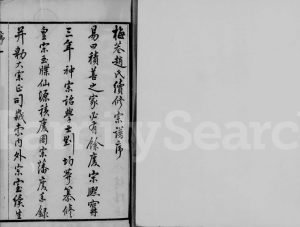 梅苍趙氏續修宗譜序
易曰積善之家必有餘慶宗熙寧
三年神宗詔學士劉均等纂修
皇宗玉牒仙源積慶圖宗藩慶系錄
并勒大宗正司藏索内外宗室緩生
序